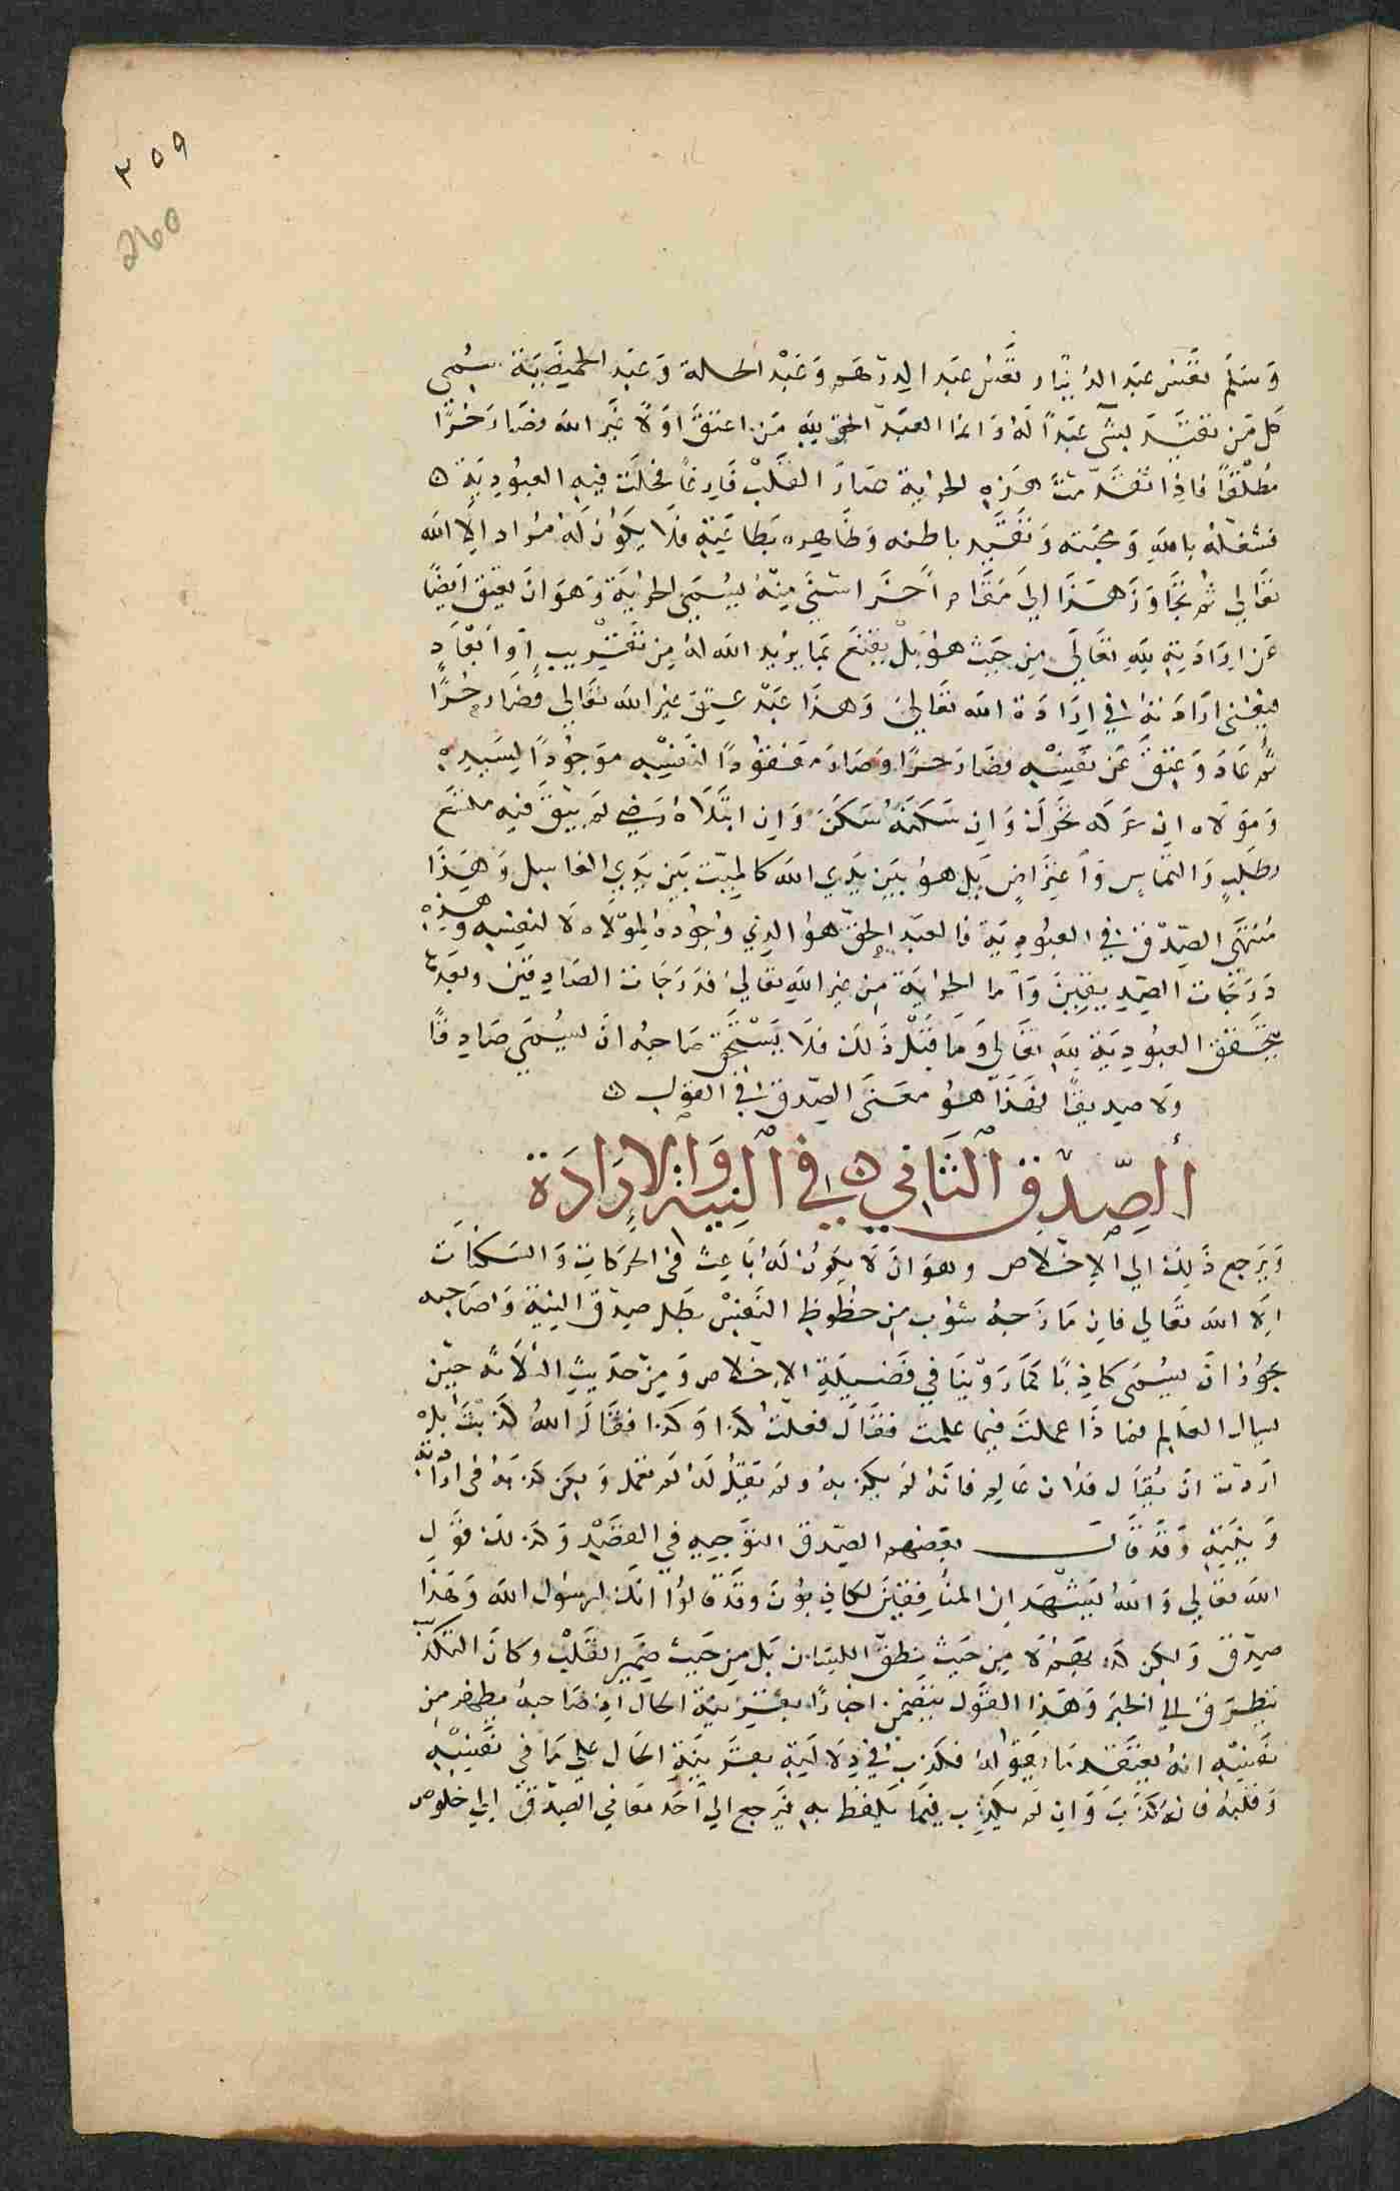 ٢٥٩
260
وَسَلم تَعَس عَبد الدينار تعس عَبد الدرهَم وَعَبْد الحلة وَعَبد الخميصَة سُمى
كل مَن تقيّد بشى عَبدًا لَهُ وَانما العَبد الحق لِلّهِ مَن اعتقَ اوّلاً عَن غَير اللّه فصَار حُرًّا
مُطلقًا فاذا تقدّمتْ هَذِهِ الحرّية صَارَ القَلبْ فَارغًا فحلت فيهِ العبُودِيّة ه
فتشغلهُ باللّهِ وَمحبته وَتقيّد باطنه وَظاهره بطاعَتِهِ فلا يكوُن لَهُ مُراد الا اللّه
تعَالي ثم تجَاوَز هَذا اِلى مَقامٍ اخَر اسنَى مِنهُ يُسَمى الحرّية وَهوَ انْ يعتق ايضًا
عَن ارَادَتِهِ لِلّهِ تعَالَى مِن حَيث هوَ بَلْ يقنع بمَا يريد اللّه لهُ مِن تقرِيبٍ اوْ ابعَادٍ
فيفنى ارَادَتهُ في ارَادَة اللّه تعَالىَ وَهذَا عَبْد عتق عَن غير اللّه تعَالى فصَار حُرًّا
ثم عَادَ وَعتقَ عَن نَفسِهِ فصَارَ حرًّا وَصَارَ مفقودًا لنفسِهِ موجُودًا لِسَيدهِ
وَمَوْلاه ان حَركه تحَرّك وَان سَكنَهُ سَكنَ وَان ابتلاهُ رَضي لَم يبقَ فيه متسَع
لطلبٍ وَالتماسٍ وَاعترَاضٍ بَل هوَ بيَن يَدي اللّه كالميّت بَين يَدي الغاسِل وَهَذَا
مُنتهَى الصِّدق في العبُودية فالعَبد الحق هوَ الذي وجُودهُ لموْلاه لا لنفسِهِ وَهذِهِ
دَرَجَات الصِّديقينَ وَاما الحرّية مِن غير اللّهِ تعَالى فدَرَجَات الصَادِقين وَبعدهَا
تتحَقق العبُودِيّة لِلّهِ تعَالي وَمَا قبْل ذَلك فلا يَسْتَحق صَاحِبُه انْ يسُمَى صَادِقًا
وَلا صِديقًا فهَذا هوَ معَنى الصّدق في القول ه
اَلصِّدْق اَلثَانِي ه في اَلْنِيةِ وَالاِرَادَة
وَيَرجِع ذَلِك الى الاِخلاص وَهوَ انْ لا يكوُن لَهُ بَاعِث في الحركاتِ وَالسَكناَت
اِلا اللّه تعَالي فان مَازجَهُ شوْب مِن حظُوظِ النّفسْ بطل صِدق النِية وَصَاحِبه
يجوُز انْ يسُمَى كاذِبًا كمَا رَوَيْنَا فى فَضيلة الاِخلاص وَمِن حَديثِ الثلاثة حِيْن
يسال العَالِم مَاذا عملتَ فيما علمت فقال فعلتُ كذا وَكذا فقَالَ اللّهُ كذبْتَ بَل
اردت ان يُقَال فلان عَالِم فانَهُ لَم يكذبهُ وَلَم يَقُلْ لَهُ لَم تعمل وَلكن كذبَهُ في ارَادَتِهِ
وَنِيّتِهِ وَقَد قَاَلَ بعَضهم الصّدق التوْحِيد في القصْدِ وَكذلك قوْل
اللّه تعَالي وَاللّهُ يَشْهَد ان المنَافِقينَ لكاذِبوُن وَقَدْ قالوُا انّك لرسوُل اللّه وَهَذَا
صِدق وَلكن كذبهُم لا مِن حَيث نطق اللِسَان بَل مِن حَيث ضَمِير القَلبْ وكانَ التكذيب
يتطرّق الى الخبرَ وَهَذا القوَل يتضمن اخبارًا بقرينة الحال اذ صَاحبهُ يظهر مِن
نَفسِهِ انهُ يعتقد مَا يَقوُلهُ فكذبَ في دِلالَة بقَرِينَةِ الحَال على مَا في نَفسِهِ
وَقلبهِ فانهُ كذبَ وَان لم يكذِب فيمَا يلفظ بهِ فَيَرجع الى احَد معَاني الصِدق الى خلوص